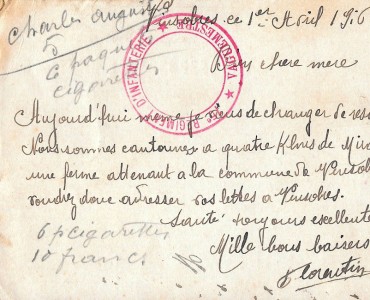 Charles
5
6 paquets
cigarettes
Vinsobres ce 1er Avril 1916
Bien chere mere
RÉGIMENT D'INFANTERIE ★ VAGUEMESTRE ★
Aujourd'hui meme je viens de changer de
Nous sommes cantonnes a quatre Klms de
une ferme attenant a la commune de Vinsobres
voudrez donc adresser vos lettres a Vinsobres.
Santé toujours excellente
Mille bons baisers
Florentin
6 p cigarettes
10 francs